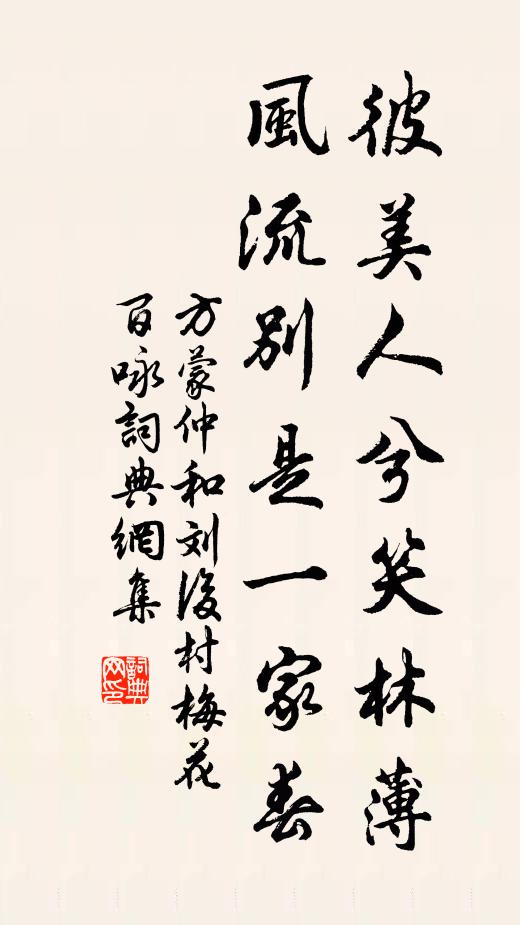 彼美人兮笑林薄
風流別是一家春
方蒙仲和刘後村梅花
百咏詞典網集
詞典網印